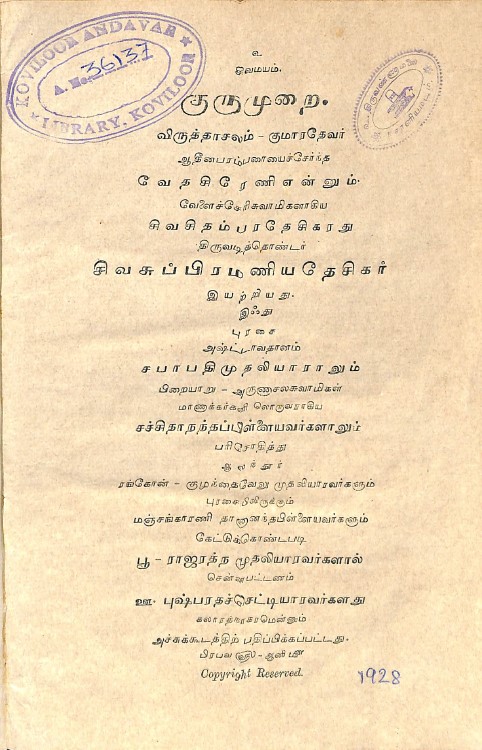 உ
சிவமயம்.
KOVILOOR ANDAVAR
A. No. 36137
LIBRARY, KOVILOOR
குருமுறை.
விருத்தாசலம் - குமாரதேவர்
ஆதீனபரம்பரையைச்சேர்ந்த
வேதசிரேணிஎன்னும்
வேளைச்சேரிசுவாமிகளாகிய
சிவசிதம்பரதேசிகரது
திருவடித்தொண்டர்
சிவசுப்பிரமணியதேசிகர்
இயற்றியது.
இஃது
புரசை
அஷ்டாவதானம்
சபாபதிமுதலியாராலும்
பிறையாறு - அருணாசலசுவாமிகள்
மாணாக்கர்களி லொருவராகிய
சச்சிதாநந்தப்பிள்ளையவர்களாலும்
பரிசோதித்து
ஆலந்தூர்
ரங்கோன் - குழந்தைவேலு முதலியாரவர்களும்
புரசையிலிருக்கும்
மஞ்சங்காரணி பிள்ளையவர்களும்
கேட்டுக்கொண்டபடி
பூ - ராஜரத்ந முதலியாரவர்களால்
சென்னபட்டணம்
ஊ. புஷ்பரதச்செட்டியாரவர்களது
கலாரத்நாகரமென்னும்
அச்சுக்கூடத்திற் பதிப்பிக்கப்பட்டது.
பிரபவ ௵ - ஆனி ௴
Copyright Reserved.
1928